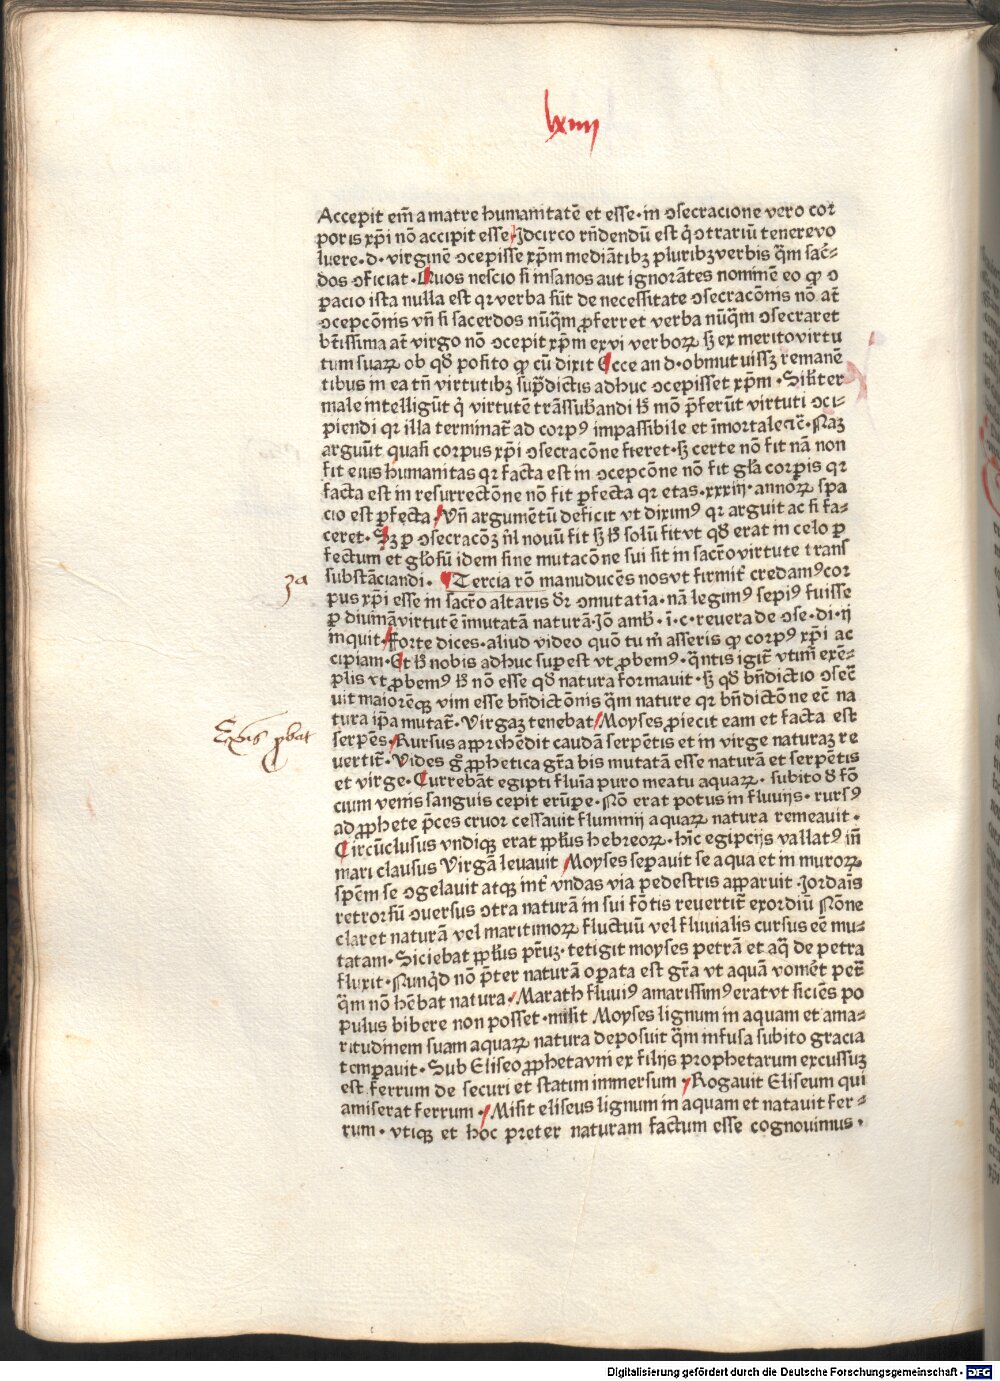 lxiiij
Accepit em̄ a matre humanitatē et esse · in ↄsecracione vero cor
poris xp̄i nō accipit esse · Jdcirco rn̄dendū est q̇ ↄtrariū tenere vo
luere · d · virginē ↄcepisse xp̄m mediātibꝫ pluribꝫ verbis q̄m sac̄⸗
dos ↄficiat · Quos nescio si insanos aut ignorātes nominē eo ꝙ ↄ
ꝑacio ista nulla est qꝛ verba sūt de necessitate ↄsecracōnis nō at̄
ↄcepcōnis vn̄ si sacerdos nūq̄m ꝓferret verba nūq̄m ↄsecraret
bt̄issima at̄ virgo nō ↄcepit xp̄m ex vi verboꝝ sꝫ ex merito virtu
tum suaꝝ ob qd̄ posito ꝙ cū dixit Ecce an d · obmutuissꝫ remanē
tibus in ea tn̄ virtutibꝫ sup̄dictis adhuc ↄcepisset xp̄m · Silr̄ter
male intelligūt q̇ virtutē trāssub̄andi h̄ mō p̄ferūt virtuti ↄci⸗
piendi qꝛ illa terminat̄ ad corpꝰ impassibile et īmortale  · Naꝫ
arguūt quasi corpus xp̄i ↄsecracōne fieret · sꝫ certe nō fit nā non
fit eius humanitas qꝛ facta est in ↄcepcōne nō fit gl̄a corꝑis qꝛ
facta est in resurrectōne nō fit ꝑfecta qꝛ etas · xxxiij · annoꝝ spa
cio est ꝑfecta · Vn̄ argumētū deficit vt diximꝰ qꝛ arguit ac si fa⸗
ceret · Sꝫ ꝑ ↄsecracōꝫ n̄l nouū fit sꝫ h̄ solū fit vt qd̄ erat in celo ꝑ
fectum et gl̄osū idem sine mutacōne sui sit in sacr̄o virtute trans
substāciandi · Tercia rō manuducēs nos vt firmit̄ credamꝰ cor
3a
pus xp̄i esse in sacr̄o altaris dr̄ ↄmutatīa · nā legimꝰ sepiꝰ fuisse
ꝑ diuinā virtutē īmutatā naturā · Jō amb̄ · i · c · reuera de ↄse · di · ij
inquit · Forte dices · aliud video quō tu m̄ asseris ꝙ corpꝰ xp̄i ac
cipiam · Et h̄ nobis adhuc superest vt ꝓbemꝰ · q̄ntis igit̄ vtim̄ exē⸗
plis vt ꝓbemꝰ h̄ nō esse qd̄ natura formauit · sꝫ qd̄ bn̄dictio ↄsec̄
uit maiorēqꝫ vim esse bn̄dictōnis q̄m nature qꝛ bn̄dictōne eē na
tura ip̄a mutat̄ · Virgaꝫ tenebat Moyses ꝓiecit eam et facta est
Exēis ꝓbat
serpēs · Rursus apprehēdit caudā serpētis et in virge naturaꝫ re
uertit̄ · Vides gͦ ꝓphetica gr̄a bis mutatā esse naturā et serpētis
et virge · Currebāt egipti fluīa puro meatu aquaꝝ · subito d̄ fō
cium venis sanguis cepit erūpe · Nō erat potus in fluuijs · rursꝰ
ad ꝓphete p̄ces cruor cessauit fluminū aquaꝝ natura remeauit ·
Circūclusus vndiqꝫ erat ppl̄us hebreoꝝ · hīc egipcijs vallatꝰ īn̄
mari clausus Virgā leuauit Moyses sepauit se aqua et in muroꝝ
spēm se ↄgelauit atqꝫ int̄ vndas via pedestris apparuit · Jordaīs
retrorsū ↄuersus ↄtra naturā in sui fōtis reuertit̄ exordiū Nōne
claret naturā vel maritimoꝝ fluctuū vel fluuialis cursus eē mu⸗
tatam · Siciebat ppl̄us pr̄uꝫ · tetigit moyses petrā et aq̄ de petra
fluxit · Nunqd̄ nō p̄ter naturā oꝑata est gr̄a vt aquā vomēt pet̄
q̄m nō hēbat natura · Marath fluuiꝰ amarissimꝰ erat vt siciēs po
pulus bibere non posset · misit Moyses lignum in aquam et ama⸗
ritudinem suam aquaꝝ natura deposuit q̄m infusa subito gracia
temꝑauit · Sub Eliseo ꝓpheta vni ex filijs prophetarum excussuꝫ
est ferrum de securi et statim immersum · Rogauit Eliseum qui
amiserat ferrum · Misit eliseus lignum in aquam et natauit fer⸗
rum · vtiqꝫ et hoc preter naturam factum esse cognouimus ·
Digitalisierung gefördert durch die Deutsche Forschungsgemeinschaft - DFG